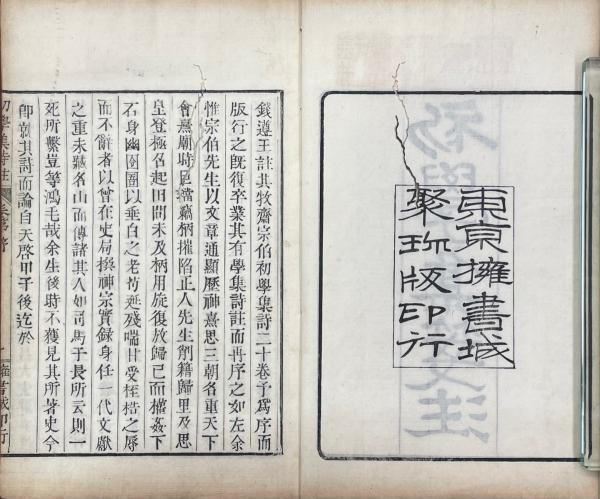 東亰擁書城
聚珎版印行
錢遵王註其牧齋宗伯初學集詩二十卷予爲序而
版行之旣復卒業其有學集詩註而再序之如左余
惟宗伯先生以文章通顯歷神熹思三朝名重天下
會熹廟時區璫竊柄摧陷正人先生削籍歸里及思
皇登極名起田間未及柄用旋復放歸已而權姦下
石身幽囹圄以垂白之老苟延殘喘甘受桎梏之辱
而不辭者以曾在史局撰神宗實錄身任一代文獻
之重未藏名山而傳諸其人如司馬子長所云則一
死所繫豈等鴻毛哉余生後時不獲見其所著史今
卽就其詩而論自天啓甲子後迄於
初學集詩註 序 一 擁書城印行